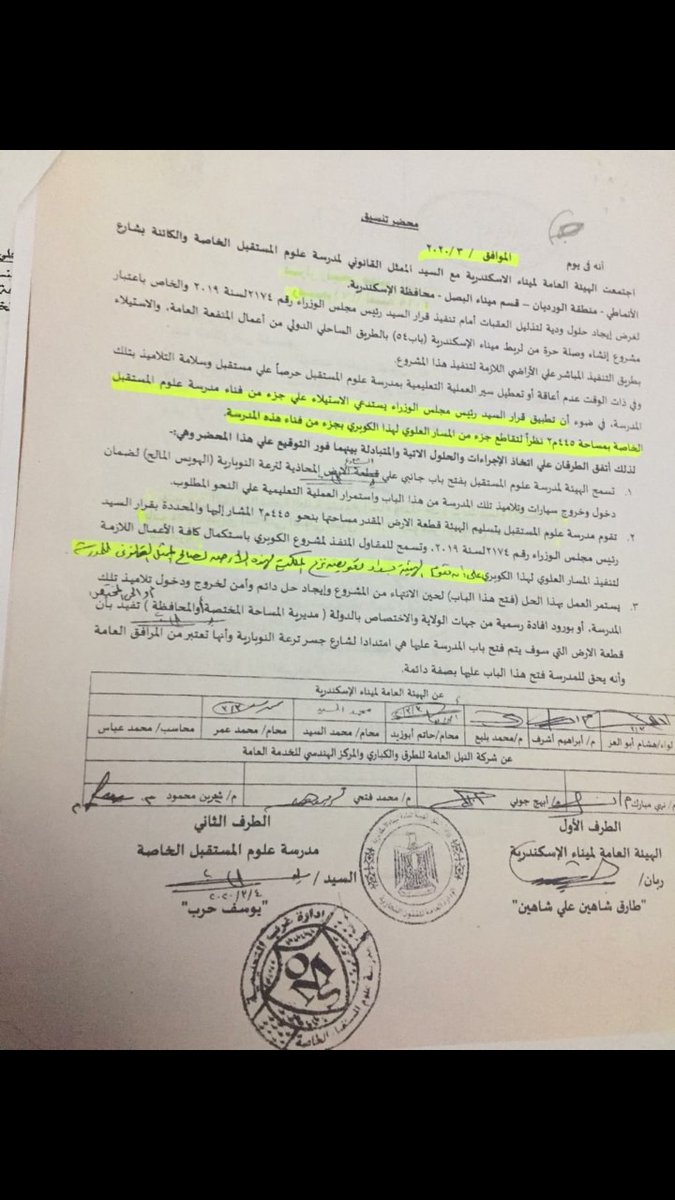 محضر تنسيق
أنه في يوم الموافق / ٢٠٢٠/٣
اجتمعت الهيئة العامة لميناء الاسكندرية مع السيد الممثل القانوني لمدرسة علوم المستقبل الخاصة والكائنة بشارع
الأنماطي – منطقة الورديان – قسم ميناء البصل - محافظة الإسكندرية.
لغرض إيجاد حلول ودية لتذليل العقبات أمام تنفيذ قرار السيد رئيس مجلس الوزراء رقم ٢١٧٤ لسنة ٢٠١٩ والخاص باعتبار
مشروع إنشاء وصلة حرة من لربط ميناء الإسكندرية (باب٥٤) بالطريق الساحلي الدولي من أعمال المنفعة العامة، والاستيلاء
بطريق التنفيذ المباشر علي الأراضي اللازمة لتنفيذ هذا المشروع.
وفي ذات الوقت عدم أعاقة أو تعطيل سير العملية التعليمية بمدرسة علوم المستقبل حرصاً علي مستقبل وسلامة التلاميذ بتلك
المدرسة، في ضوء أن تطبيق قرار السيد رئيس مجلس الوزراء يستدعي الاستيلاء علي جزء من فناء مدرسة علوم المستقبل
الخاصة بمساحة ٤٤٥م٢ نظراً لتقاطع جزء من المسار العلوي لهذا الكوبري بجزء من فناء هذه المدرسة.
لذلك أتفق الطرفان علي اتخاذ الإجراءات والحلول الاتية والمتبادلة بينهما فور التوقيع علي هذا المحضر وهي:-
١. تسمح الهيئة لمدرسة علوم المستقبل بفتح باب جانبي علي قطعة الارض المحاذية لترعة النوبارية (الهويس المالح) لضمان
دخول وخروج سيارات وتلاميذ تلك المدرسة من هذا الباب واستمرار العملية التعليمية علي النحو المطلوب.
٢. تقوم مدرسة علوم المستقبل بتسليم الهيئة قطعة الارض المقدر مساحتها بنحو ٤٤٥م٢ المشار إليها والمحددة بقرار السيد
رئيس مجلس الوزراء رقم ٢١٧٤ لسنة ٢٠١٩، وتسمح للمقاول المنفذ لمشروع الكوبري باستكمال كافة الأعمال اللازمة
لتنفيذ المسار العلوي لهذا الكوبري على أن تقوم الهيئة بسداد تعويض نزع الملكية لهذه الأرض لصالح الممثل القانوني للمدرسة
٣. يستمر العمل بهذا الحل (فتح هذا الباب) لحين الانتهاء من المشروع وإيجاد حل دائم وأمن لخروج ودخول تلاميذ تلك
المدرسة، أو بورود افادة رسمية من جهات الولاية والاختصاص بالدولة ( مديرية المساحة المختصة أو المحافظة ) تفيد بأن
قطعة الارض التي سوف يتم فتح باب المدرسة عليها هي امتدادا لشارع جسر ترعة النوبارية وأنها تعتبر من المرافق العامة
وأنه يحق للمدرسة فتح هذا الباب عليها بصفة دائمة.
عن الهيئة العامة لميناء الإسكندرية
لواء/هشام أبو العز م/ أبراهيم أشرف م/محمد بليع محام/حاتم أبوزيد محام/ محمد السيد محام/ محمد عمر محاسب/ محمد عباس
عن شركة النيل العامة للطرق والكباري والمركز الهندسي للخدمة العامة
م/ نبي مبارك م/ ابيج جولي م/ محمد فتحي م/ شيرين محمود
الطرف الأول الطرف الثاني
الهيئة العامة لميناء الإسكندرية مدرسة علوم المستقبل الخاصة
ربان/ السيد /
٢٠٢٠/٣/٤
"طارق شاهين علي شاهين" "يوسف حرب"
إدارة غرب التعليمية
مدرسة علوم المستقبل الخاصة